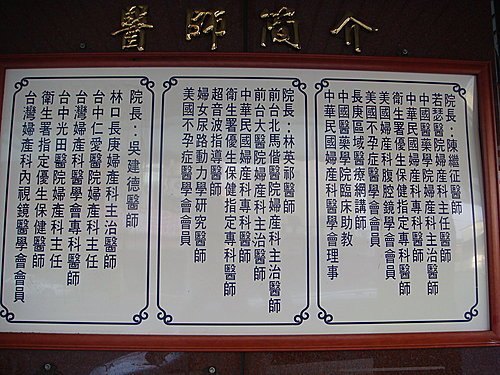 醫師簡介
院長：陳繼征醫師
若瑟醫院婦產科主任醫師
中國醫藥學院婦產科醫師
中華民國婦產科專科醫師
衛生署優生保健指定專科醫師
美國婦產科腹腔鏡學會會員
美國不孕症醫學會會員
長庚區域醫療網講師
中國醫藥學院臨床助教
中華民國婦產科醫學會理事
院長：林英祁醫師
前台北馬偕醫院婦產科主治醫師
前台大醫院婦產科主治醫師
中華民國婦產科專科醫師
衛生署優生保健指定專科醫師
超音波指導醫師
婦女尿路動力學研究醫師
美國不孕症醫學會會員
院長：吳建德醫師
林口長庚婦產科主治醫師
台中仁愛醫院婦產科主任
台灣婦產科醫學會專科醫師
台中光田醫院婦產科主任
衛生署指定優生保健醫師
台灣婦產科內視鏡醫學會會員